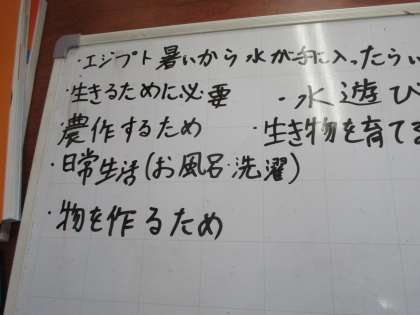 ・エジプト 暑いから 水が手に入ったらい
・生きるために必要 ・水遊び
・農作するため ・生き物を育てる
・日常生活(お風呂・洗濯)
・物を作るため